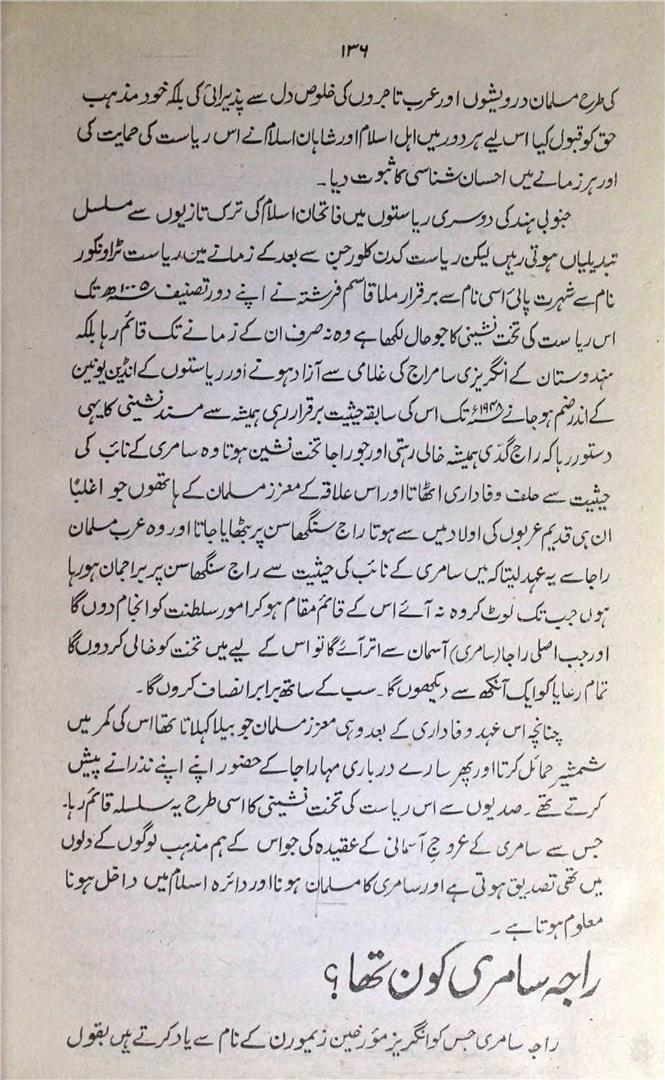 ۱۳۶
کی طرح مسلمان درویشوں اور عرب تاجروں کی خلوص دل سے پذیرائی کی بلکہ خود مذہب
حق کو قبول کیا اس لیے ہر دور میں اہل اسلام اور شاہان اسلام نے اس ریاست کی حمایت کی
اور ہر زمانے میں احسان شناسی کا ثبوت دیا۔
جنوبی ہند کی دوسری ریاستوں میں فاتحان اسلام کی ترک تازیوں سے مسلسل
تبدیلیاں ہوتی رہیں لیکن ریاست کدن کلور جس سے بعد کے زمانے میں ریاست ٹراونکور
نام سے شہرت پائی اسی نام سے برقرار رہا ملا قاسم فرشتہ نے اپنے دور تصنیف ۱۰۰۵ھ تک
اس ریاست کی تخت نشینی کا جو حال لکھا ہے وہ نہ صرف ان کے زمانے تک قائم رہا بلکہ
ہندوستان کے انگریزی سامراج کی غلامی سے آزاد ہونے اور ریاستوں کے انڈین یونین
کے اندر ضم ہو جانے ۱۹۴۸ء تک اس کی سابقہ حیثیت برقرار رہی ہمیشہ سے مسند نشینی کا یہی
دستور رہا کہ راج گدّی ہمیشہ خالی رہتی اور جو راجا تخت نشین ہوتا وہ سامری کے نائب کی
حیثیت سے حلف وفاداری اٹھاتا اور اس علاقہ کے معزز مسلمان کے ہاتھوں جو اغلباً
ان ہی قدیم عربوں کی اولاد میں سے ہوتا راج سنگھاسن پر بٹھایا جاتا اور وہ عرب مسلمان
راجا سے یہ عہد لیتا کہ میں سامری کے نائب کی حیثیت سے راج سنگھاسن پر براجمان ہو رہا
ہوں جب تک لوٹ کر وہ نہ آئے اس کے قائم مقام ہو کر امور سلطنت کو انجام دوں گا
اور جب اصلی راجا (سامری) آسمان سے اتر آئے گا تو اس کے لیے میں تخت کو خالی کردوں گا
تمام رعایا کو ایک آنکھ سے دیکھوں گا۔ سب کے ساتھ برابر انصاف کروں گا۔
چنانچہ اس عہد وفاداری کے بعد وہی معزز مسلمان جو بیلا کہلاتا تھا اس کی کمر میں
شمشیر حمائل کرتا اور پھر سارے درباری مہاراجا کے حضور اپنے اپنے نذرانے پیش
کرتے تھے۔ صدیوں سے اس ریاست کی تخت نشینی کا اسی طرح یہ سلسلہ قائم رہا۔
جس سے سامری کے عروج آسمانی کے عقیدہ کی جو اس کے ہم مذہب لوگوں کے دلوں
میں تھی تصدیق ہوتی ہے اور سامری کا مسلمان ہونا اور دائرہ اسلام میں داخل ہونا
معلوم ہوتا ہے۔
راجہ سامری کون تھا؟
راجہ سامری جس کو انگریز مؤرخین زیمورن کے نام سے یاد کرتے ہیں بقول